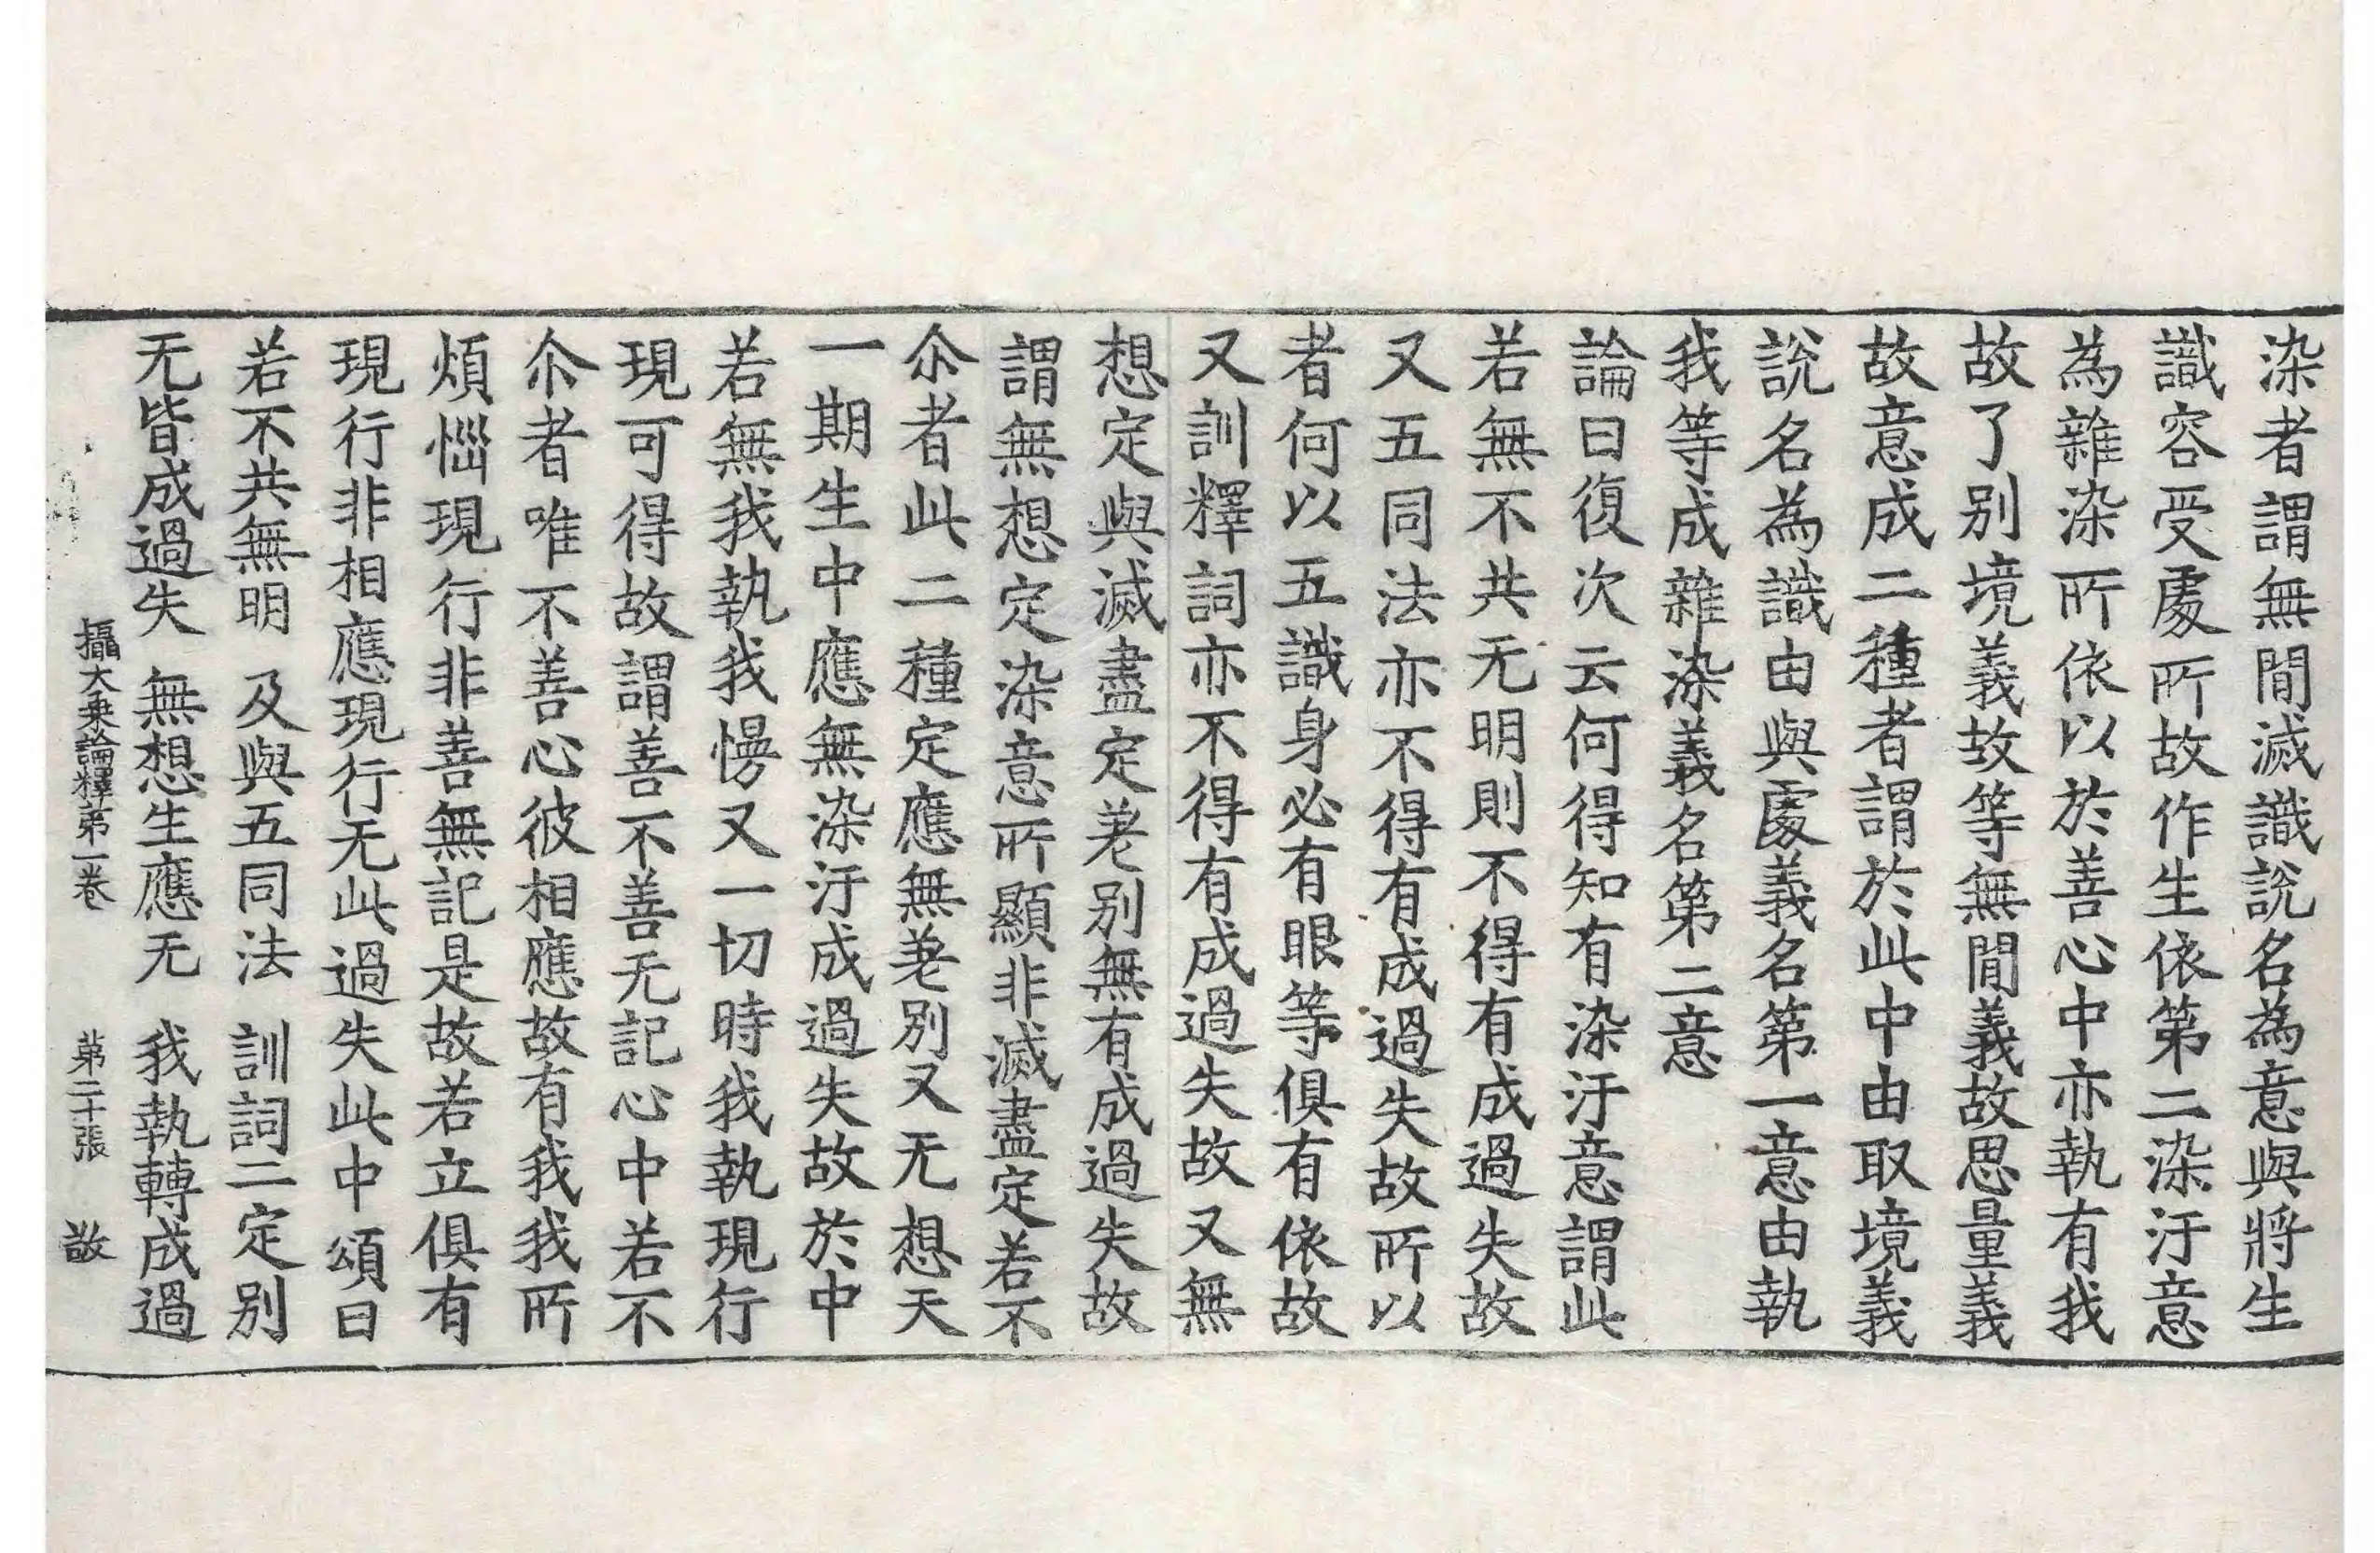 染者謂無閒滅識說名為意與將生
識容受處所故作生依第二染汙意
為雜染所依以於善心中亦執有我
故了別境義故等無閒義故思量義
故意成二種者謂於此中由取境義
說名為識由與處義名第一意由執
我等成雜染義名第二意
論曰復次云何得知有染汙意謂此
若無不共无明則不得有成過失故
又五同法亦不得有成過失故所以
者何以五識身必有眼等俱有依故
又訓釋詞亦不得有成過失故又無
想定與滅盡定差別無有成過失故
謂無想定染意所顯非滅盡定若不
尒者此二種定應無差別又无想天
一期生中應無染汙成過失故於中
若無我執我慢又一切時我執現行
現可得故謂善不善无記心中若不
尒者唯不善心彼相應故有我我所
煩惱現行非善無記是故若立俱有
現行非相應現行无此過失此中頌曰
若不共無明 及與五同法 訓詞二定別
无皆成過失 無想生應无 我執轉成過
攝大乗論釋第一卷 第二十張 敬